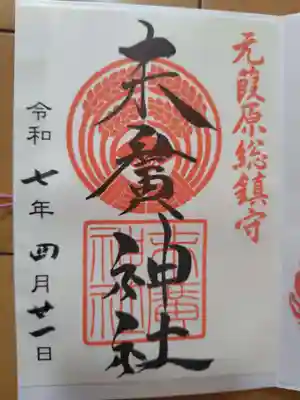 元葭原総鎮守
末廣神社
令和七年四月廿一日
末廣
神社